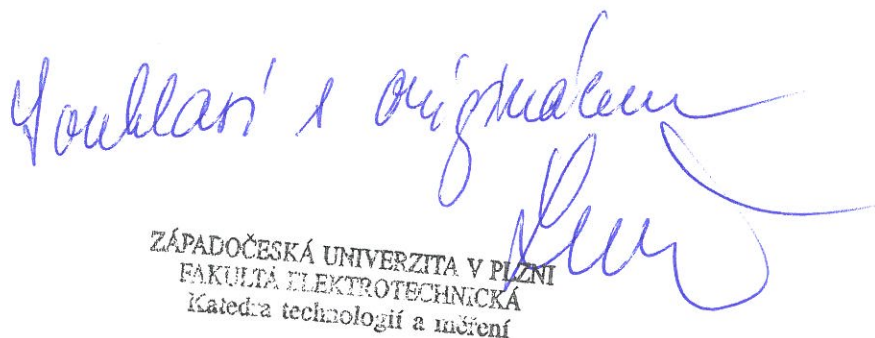 Souhlasí s originálem
ZÁPADOČESKÁ UNIVERZITA V PLZNI
FAKULTA ELEKTROTECHNICKÁ
Katedra technologií a měření